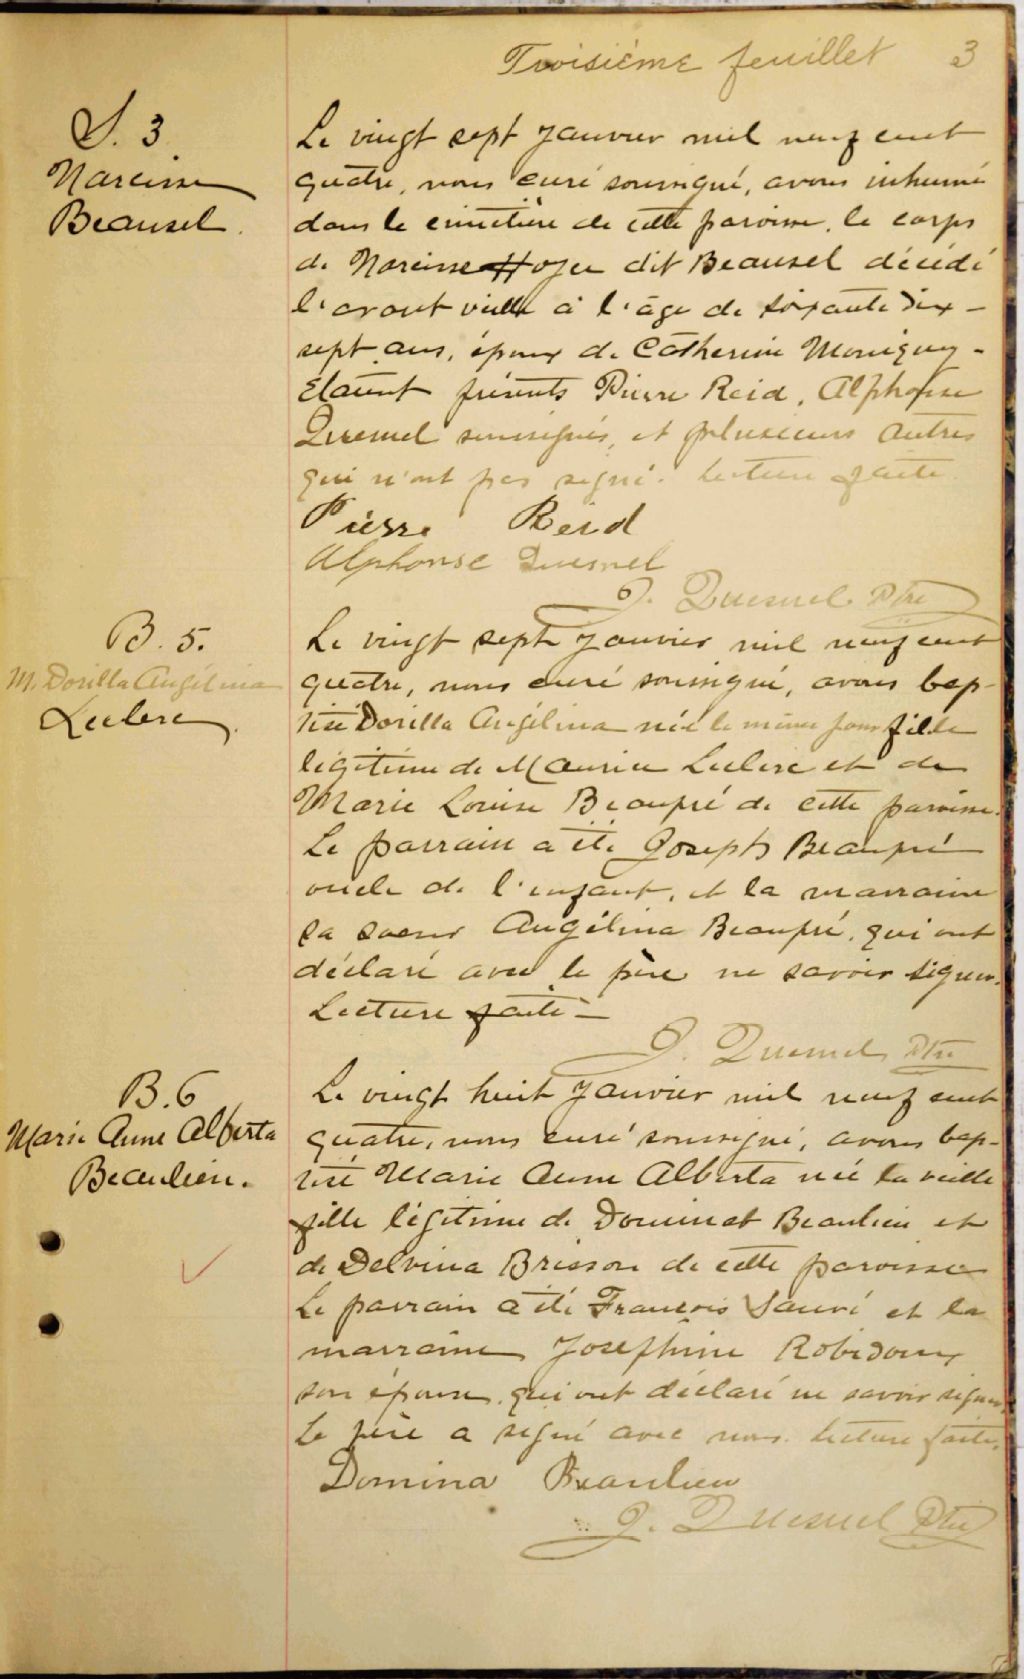 Troisième feuillet 3
S. 3
Narcisse
Beausel.
Le vingt sept Janvier mil neuf cent
quatre, nous curé soussigné, avons inhumé
dans le cimetière de cette paroisse, le corps
de Narcisse dit Beausel décédé
l'avant veille à l'âge de soixante dix-
sept ans, époux de Catherine
Étaient présents Pierre Reid, Alphonse
Quesnel soussignés, et plusieurs autres
qui n'ont pas signé. Lecture faite
Pierre Reid
Alphonse Quesnel
J. Quesnel Ptre
B. 5.
M. Dorilla Angélina
Leclerc
Le vingt sept Janvier mil neuf cent
quatre, nous curé soussigné, avons bap-
tisé Dorilla Angélina née le même jour fille
légitime de Maurice Leclerc et de
Marie Louise Beaupré de cette paroisse.
Le parrain a été Joseph Beaupré
oncle de l'enfant, et la marraine
sa soeur Angélina Beaupré, qui ont
déclaré avec le père ne savoir signer.
Lecture faite -
J. Quesnel Ptre
B. 6
Marie Anne Alberta
Beaulieu.
Le vingt huit Janvier mil neuf cent
quatre, nous curé soussigné, avons bap-
tisé Marie Anne Alberta née la veille
fille légitime de Dominat Beaulieu et
de Delvina Brisson de cette paroisse
Le parrain a été Francois Sauvé et la
marraine Josephine Robidoux
son épouse, qui ont déclaré ne savoir signer.
Le père a signé avec nous. Lecture faite.
Domina Beaulieu
J. Quesnel Ptre